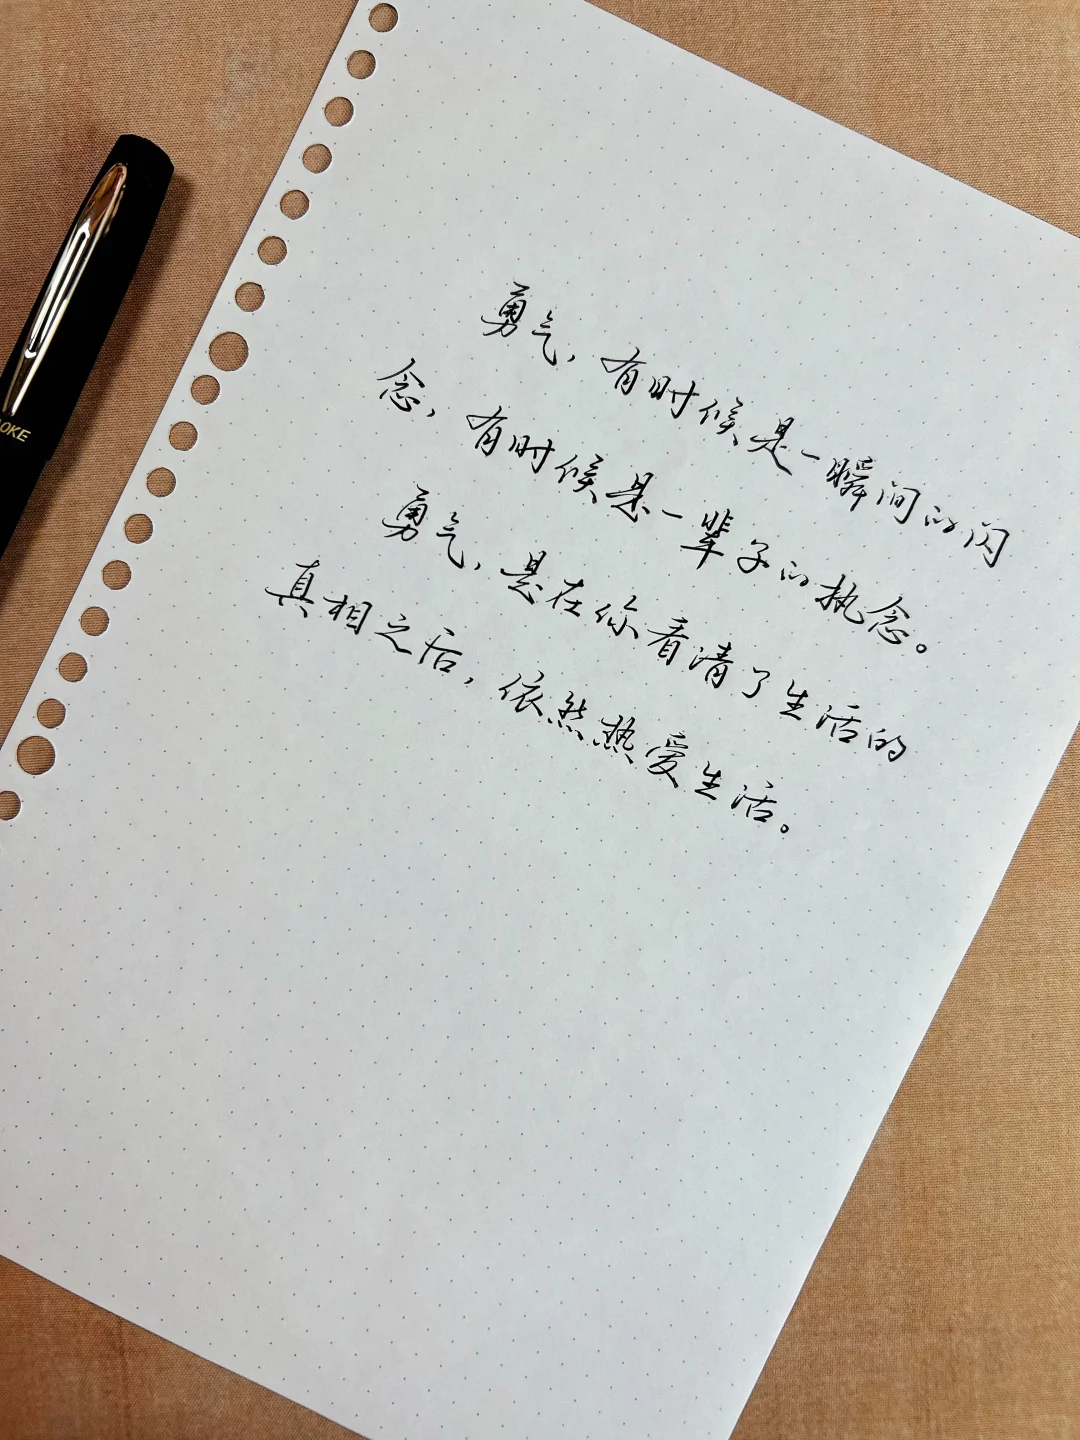 勇气，有时候是一瞬间的闪
念，有时候是一辈子的执念。
勇气，是在你看清了生活的
真相之后，依然热爱生活。
OKE